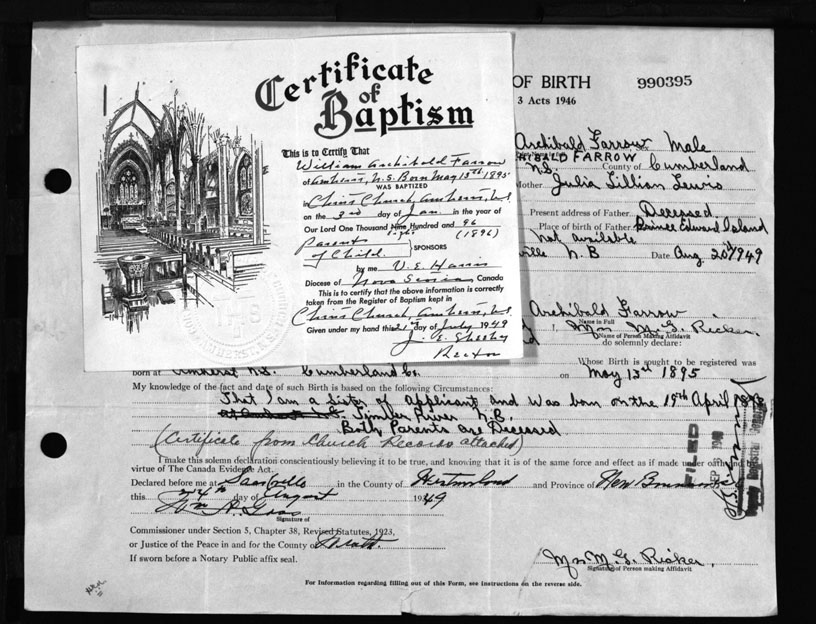 Certificate
of
Baptism
This is to Certify That
William Archibald Farrow
of Amherst, N.S. Born May 13th 1895
WAS BAPTIZED
in Christ Church, Amherst, N.S.
on the 3rd day of Jan. in the year of
Our Lord One Thousand Nine Hundred and 96
Eight (1896)
Parents
of Child. } SPONSORS
by me V. E. Harris
Diocese of Nova Scotia, Canada
This is to certify that the above information is correctly
taken from the Register of Baptism kept in
Christ Church, Amherst, N.S.
Given under my hand this day of July 1949
Rector
OF BIRTH 990395
3 Acts 1946
Archibald Farrow Male
ARCHIBALD FARROW
N.S. County of Cumberland
Mother Julia Lillian Lewis
Present address of Father Deceased.
Place of birth of Father Prince Edward Island
Not available
ville N.B Date Aug. 20th 1949
Archibald Farrow
Name in Full
I, Mrs M. G. Ricker.
Name of Person Making Affidavit
do solemnly declare:
Whose Birth is sought to be registered was
born at Amherst N.S. Cumberland Co. on May 13th 1895
My knowledge of the fact and date of such Birth is based on the following Circumstances:
That I am a sister of applicant and was born on the 15th April
Timber River N.B.
Both Parents are Deceased
(Certificate from Church Records attached)
I make this solemn declaration conscientiously believing it to be true, and knowing that it is of the same force and effect as if made under oath and by
virtue of The Canada Evidence Act.
Declared before me at Sackville in the County of Westmorland and Province of New Brunswick
this 24th day of August 1949
Signature of
Commissioner under Section 5, Chapter 38, Revised Statutes, 1923,
or Justice of the Peace in and for the County of
If sworn before a Notary Public affix seal.
Mrs M. G. Ricker.
Signature of Person making Affidavit
For Information regarding filling out of this Form, see instructions on the reverse side.
FILED